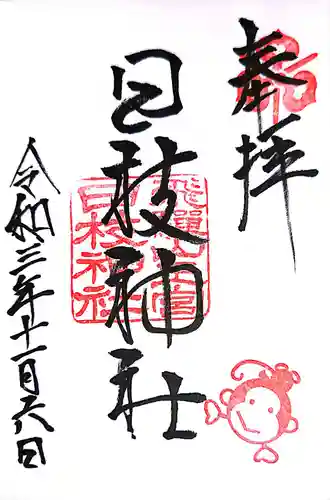 奉拝
日枝神社
飛騨山王宮
日枝神社
令和三年十一月六日